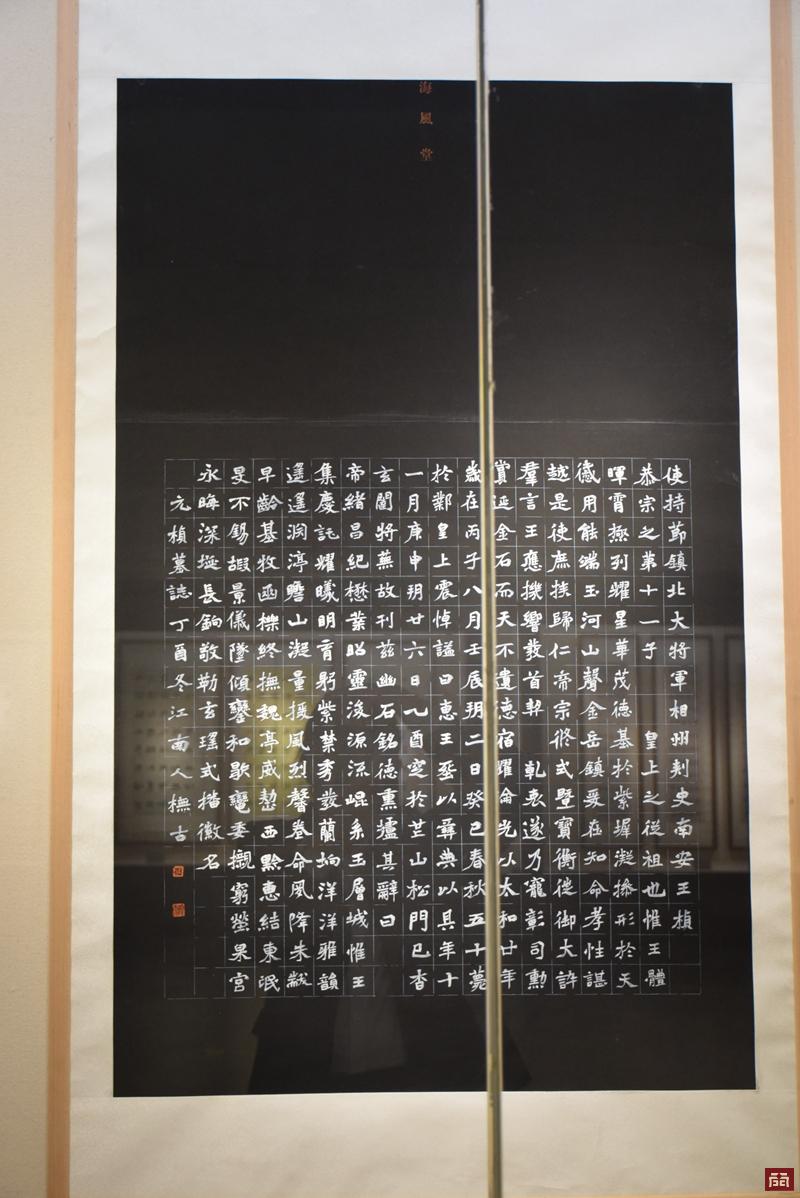 海風堂
使持節鎮北大將軍相州刺史南安王楨
恭宗之第十一子 皇上之從祖也惟王體
暉霄極列耀星華茂德基於紫墀凝操形於天
感用能端玉河山聲金岳鎮爰在知命孝性諶
越是使庶族歸仁帝宗攸式暨寶衡徙御大訏
羣言王應機響發首契 乹衷遂乃寵彰司勳
賞延金石而天不遺德宿耀淪光以太和廿年
歲在丙子八月壬辰朔二日癸巳春秋五十薨
於鄴皇上震悼謚曰惠王葬以彝典以其年十
一月庚申朔廿六日乙酉窆於芒山松門已杳
玄闥將蕪故刊茲幽石銘德熏壚其辭曰
帝緒昌紀懋業昭靈浚源流崐系玉層城惟王
集慶託耀曦明育躬紫禁秀發蘭坰洋洋雅韻
遙遙淵渟瞻山凝量援風烈馨卷命夙降朱黻
早齡基牧函櫟終撫魏亭威整西黔惠結東氓
旻不錫嘏景儀墜傾鑾和歇轡委櫬窮塋泉宮
永晦深埏長鐍敬勒玄瑤式播徽名
元楨墓誌丁酉冬江南人撫古